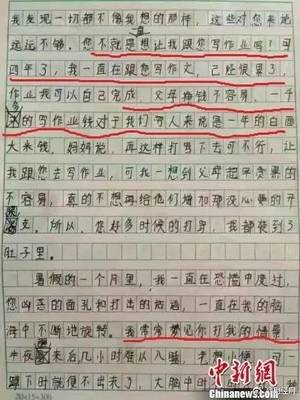 我发现一切都不像我想的那样，这些对您来说
远远不够。您不就是想让我跟您写作业吗？可
四年了，我一直在跟您写作文，已经很累了，
作业我可以自己完成，父母挣钱不容易，一千
的写作业钱对于我们穷人来说是一年的白面
大米钱。妈妈说，再这样打骂下去可不行，让
我跟您去写作业，可我一想到父母起早贪黑的
不容易，真的不想再给他们增加那没必要的开
支。所以，您好多时候的打骂，我都装到了
肚子里。
暑假的一个月里，我一直在恐惧中度过，
您凶恶的面孔和打出的话语，一直在我的脑
海中不断地旋转。我常常梦见你打我的情景，
半夜 来后几小时难以入睡，老
蹲下时就便不出来了，大脑中时
中新网
20×15=300